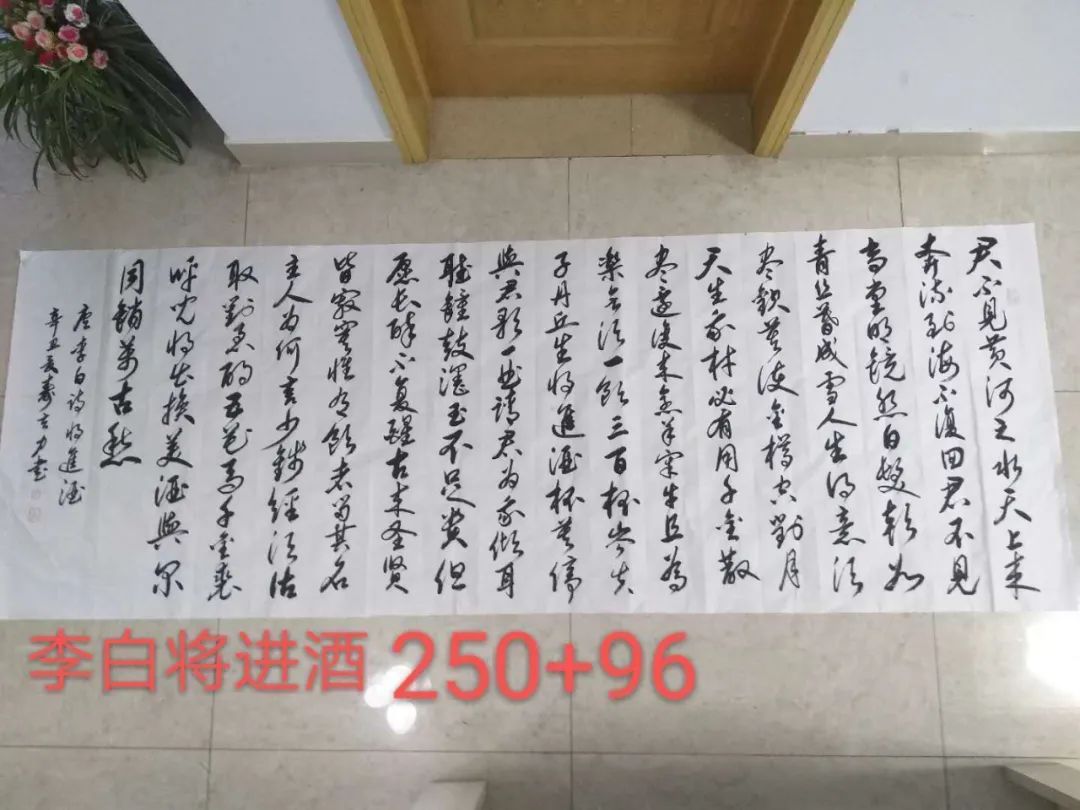 君不見黄河之水天上来
奔流到海不復回君不見
高堂明镜悲白髮朝如
青丝暮成雪人生得意须
尽歡莫使金樽空對月
天生我材必有用千金散
尽還復来烹羊宰牛且為
樂会须一飲三百杯岑夫
子丹丘生将進酒杯莫停
與君歌一曲請君为我倾耳
聴鐘鼓馔玉不足贵但
愿长醉不复醒古来圣贤
皆寂寞惟有飲者留其名
主人为何言少錢径须沽
取對君酌五花马千金裘
呼児将出换美酒與尔
同銷萬古愁
唐李白诗将進酒
辛丑夏書
李白将进酒 250+96